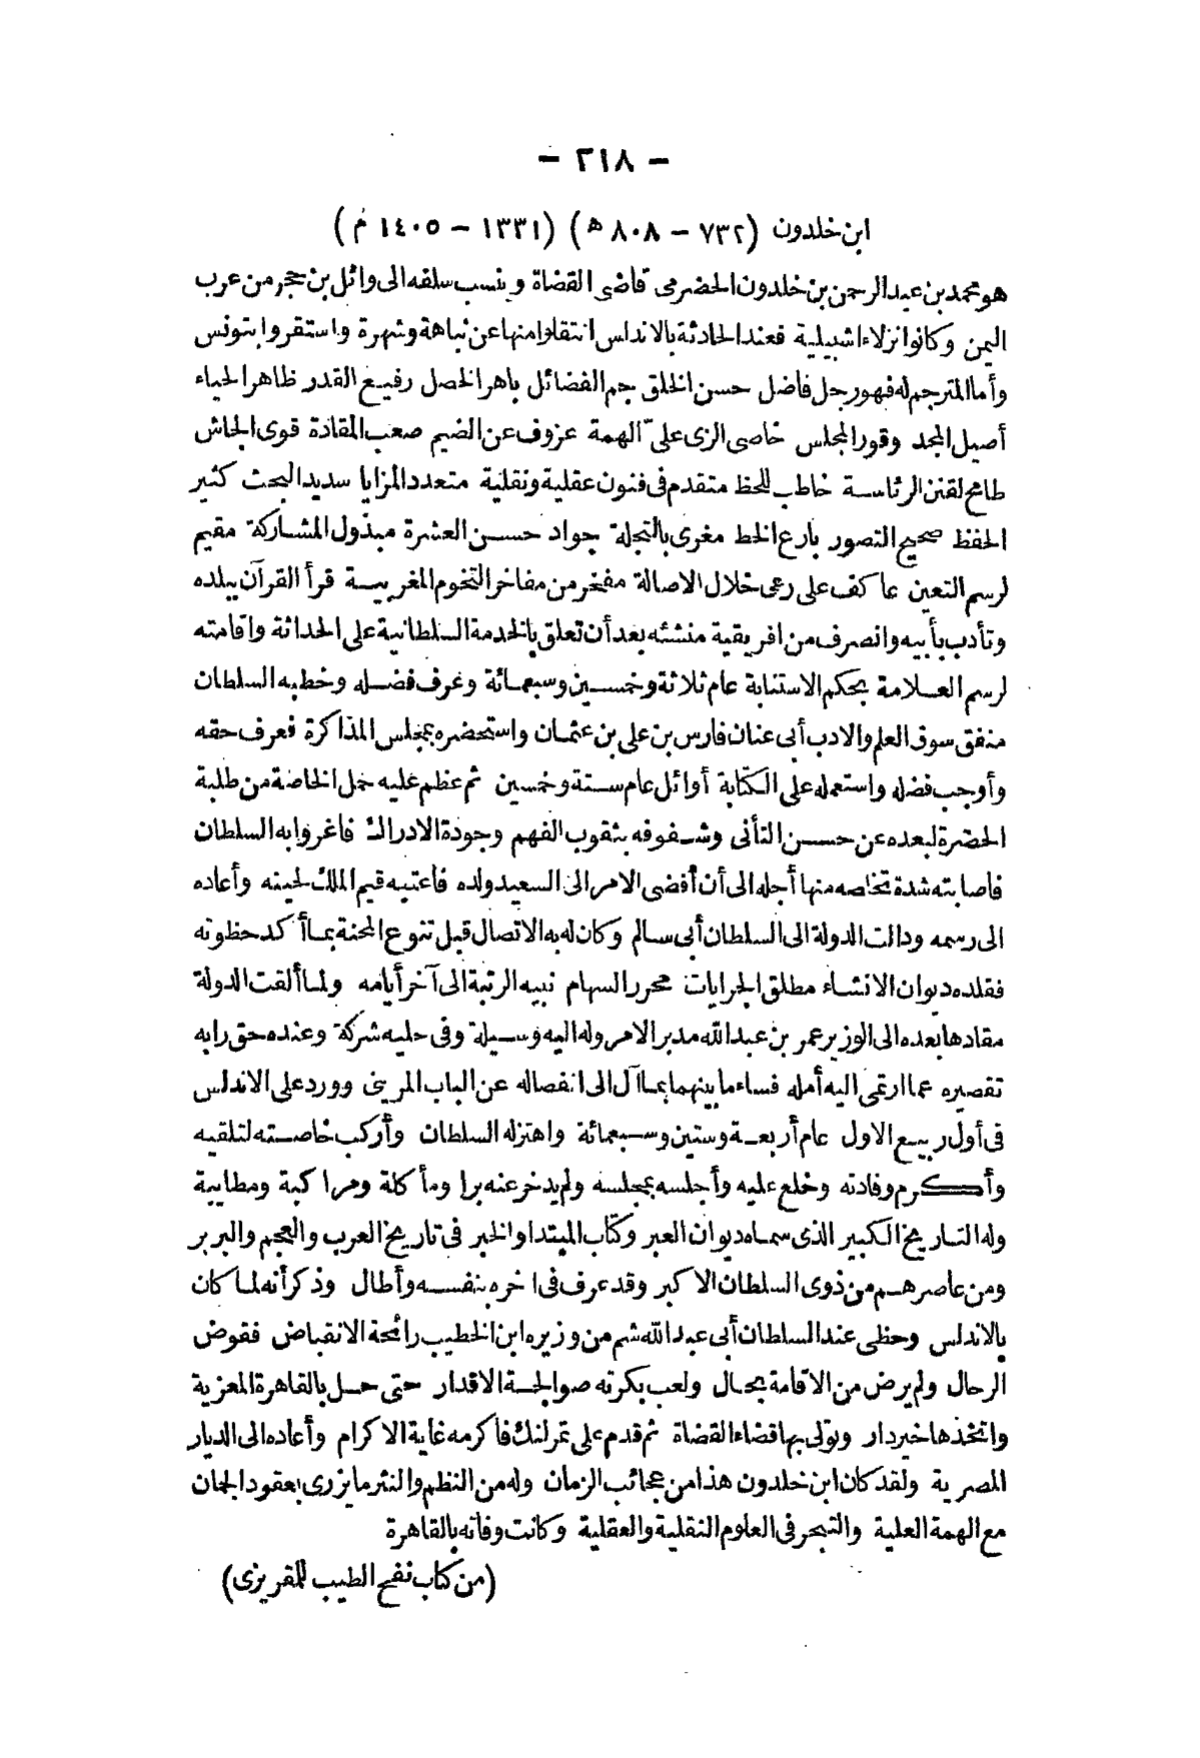 — ٢١٨ —
ابن خلدون (٧٣٢ — ٨٠٨ ه) (١٣٣١ — ١٤٠٥ م)
هو محمد بن عبد الرحمن بن خلدون الحضرمى قاضى القضاة وينسب سلفه الى وائل بن حجر من عرب
اليمن وكانوا نزلاء اشبيلية فعند الحادثة بالاندلس انتقلوا منها عن نباهة وشهرة واستقروا بتونس
وأما المترجم له فهو رجل فاضل حسن الخلق جم الفضائل باهر الخصل رفيع القدر ظاهر الحياء
أصيل المجد وقور المجلس خاصى الزى علىّ الهمة عزوف عن الضيم صعب المقادة قوى الجاش
طامح لقنن الرئاسة خاطب للحظ متقدم فى فنون عقلية ونقلية متعدد المزايا سديد البحث كثير
الحفظ صحيح التصور بارع الخط مغرى بالتجلة جواد حسن العشرة مبذول المشاركة مقيم
لرسم التعين عاكف على رعى خلال الاصالة مفخر من مفاخر التخوم المغربية قرأ القرآن ببلده
وتأدب بأبيه وانصرف من افريقية منشئه بعد أن تعلق بالخدمة السلطانية على الحداثة واقامته
لرسم العلامة بحكم الاستنابة عام ثلاثة وخمسين وسبعمائة وعرف فضله وخطبه السلطان
منفق سوق العلم والادب أبى عنان فارس بن على بن عثمان واستحضره بمجلس المذاكرة فعرف حقه
وأوجب فضله واستعمله على الكتابة أوائل عام ستة وخمسين ثم عظم عليه حمل الخاصة من طلبة
الحضرة لبعده عن حسن التأنى وشفوفه بثقوب الفهم وجودة الادراك فاغروا به السلطان
فاصابته شدة تخلصه منها أجله الى أن أفضى الامر الى السعيد ولده فاعتبه قيم الملك لحينه وأعاده
الى رسمه ودالت الدولة الى السلطان أبى سالم وكان له به الاتصال قبل تنوع المحنة بما أكد حظوته
فقلده ديوان الانشاء مطلق الجرايات محرر السهام نبيه الرتبة الى آخر أيامه ولما ألقت الدولة
مقادها بعده الى الوزير عمر بن عبد الله مدبر الامر وله اليه وسيلة وفى حليه شركة وعنده حق رابه
تقصيره عما ارتمى اليه أمله فساء ما بينهما بما آل الى انفصاله عن الباب المرينى وورد على الاندلس
فى أول ربيع الاول عام أربعة وستين وسبعمائة واهتز له السلطان وأركب خاصته لتلقيه
وأكرم وفادته وخلع عليه وأجلسه بمجلسه ولم يدخر عنه برا ومأكلة ومراكبة ومطايبة
وله التاريخ الكبير الذى سماه ديوان العبر وكتاب المبتدا والخبر فى تاريخ العرب والعجم والبربر
ومن عاصرهم من ذوى السلطان الاكبر وقد عرف فى اخره بنفسه وأطال وذكر أنه لما كان
بالاندلس وحظى عند السلطان أبى عبد الله شم من وزيره ابن الخطيب رائحة الانقباض فقوض
الرحال ولم يرض من الاقامة بحال ولعب بكرته صوالجة الاقدار حتى حل بالقاهرة المعزية
واتخذها خير دار وتولى بها قضاء القضاة ثم قدم على تمرلنك فاكرمه غاية الاكرام وأعاده الى الديار
المصرية ولقد كان ابن خلدون هذا من عجائب الزمان وله من النظم والنثر ما يزرى بعقود الجمان
مع الهمة العلية والتبحر فى العلوم النقلية والعقلية وكانت وفاته بالقاهرة
(من كتاب نفح الطيب للمقريزى)